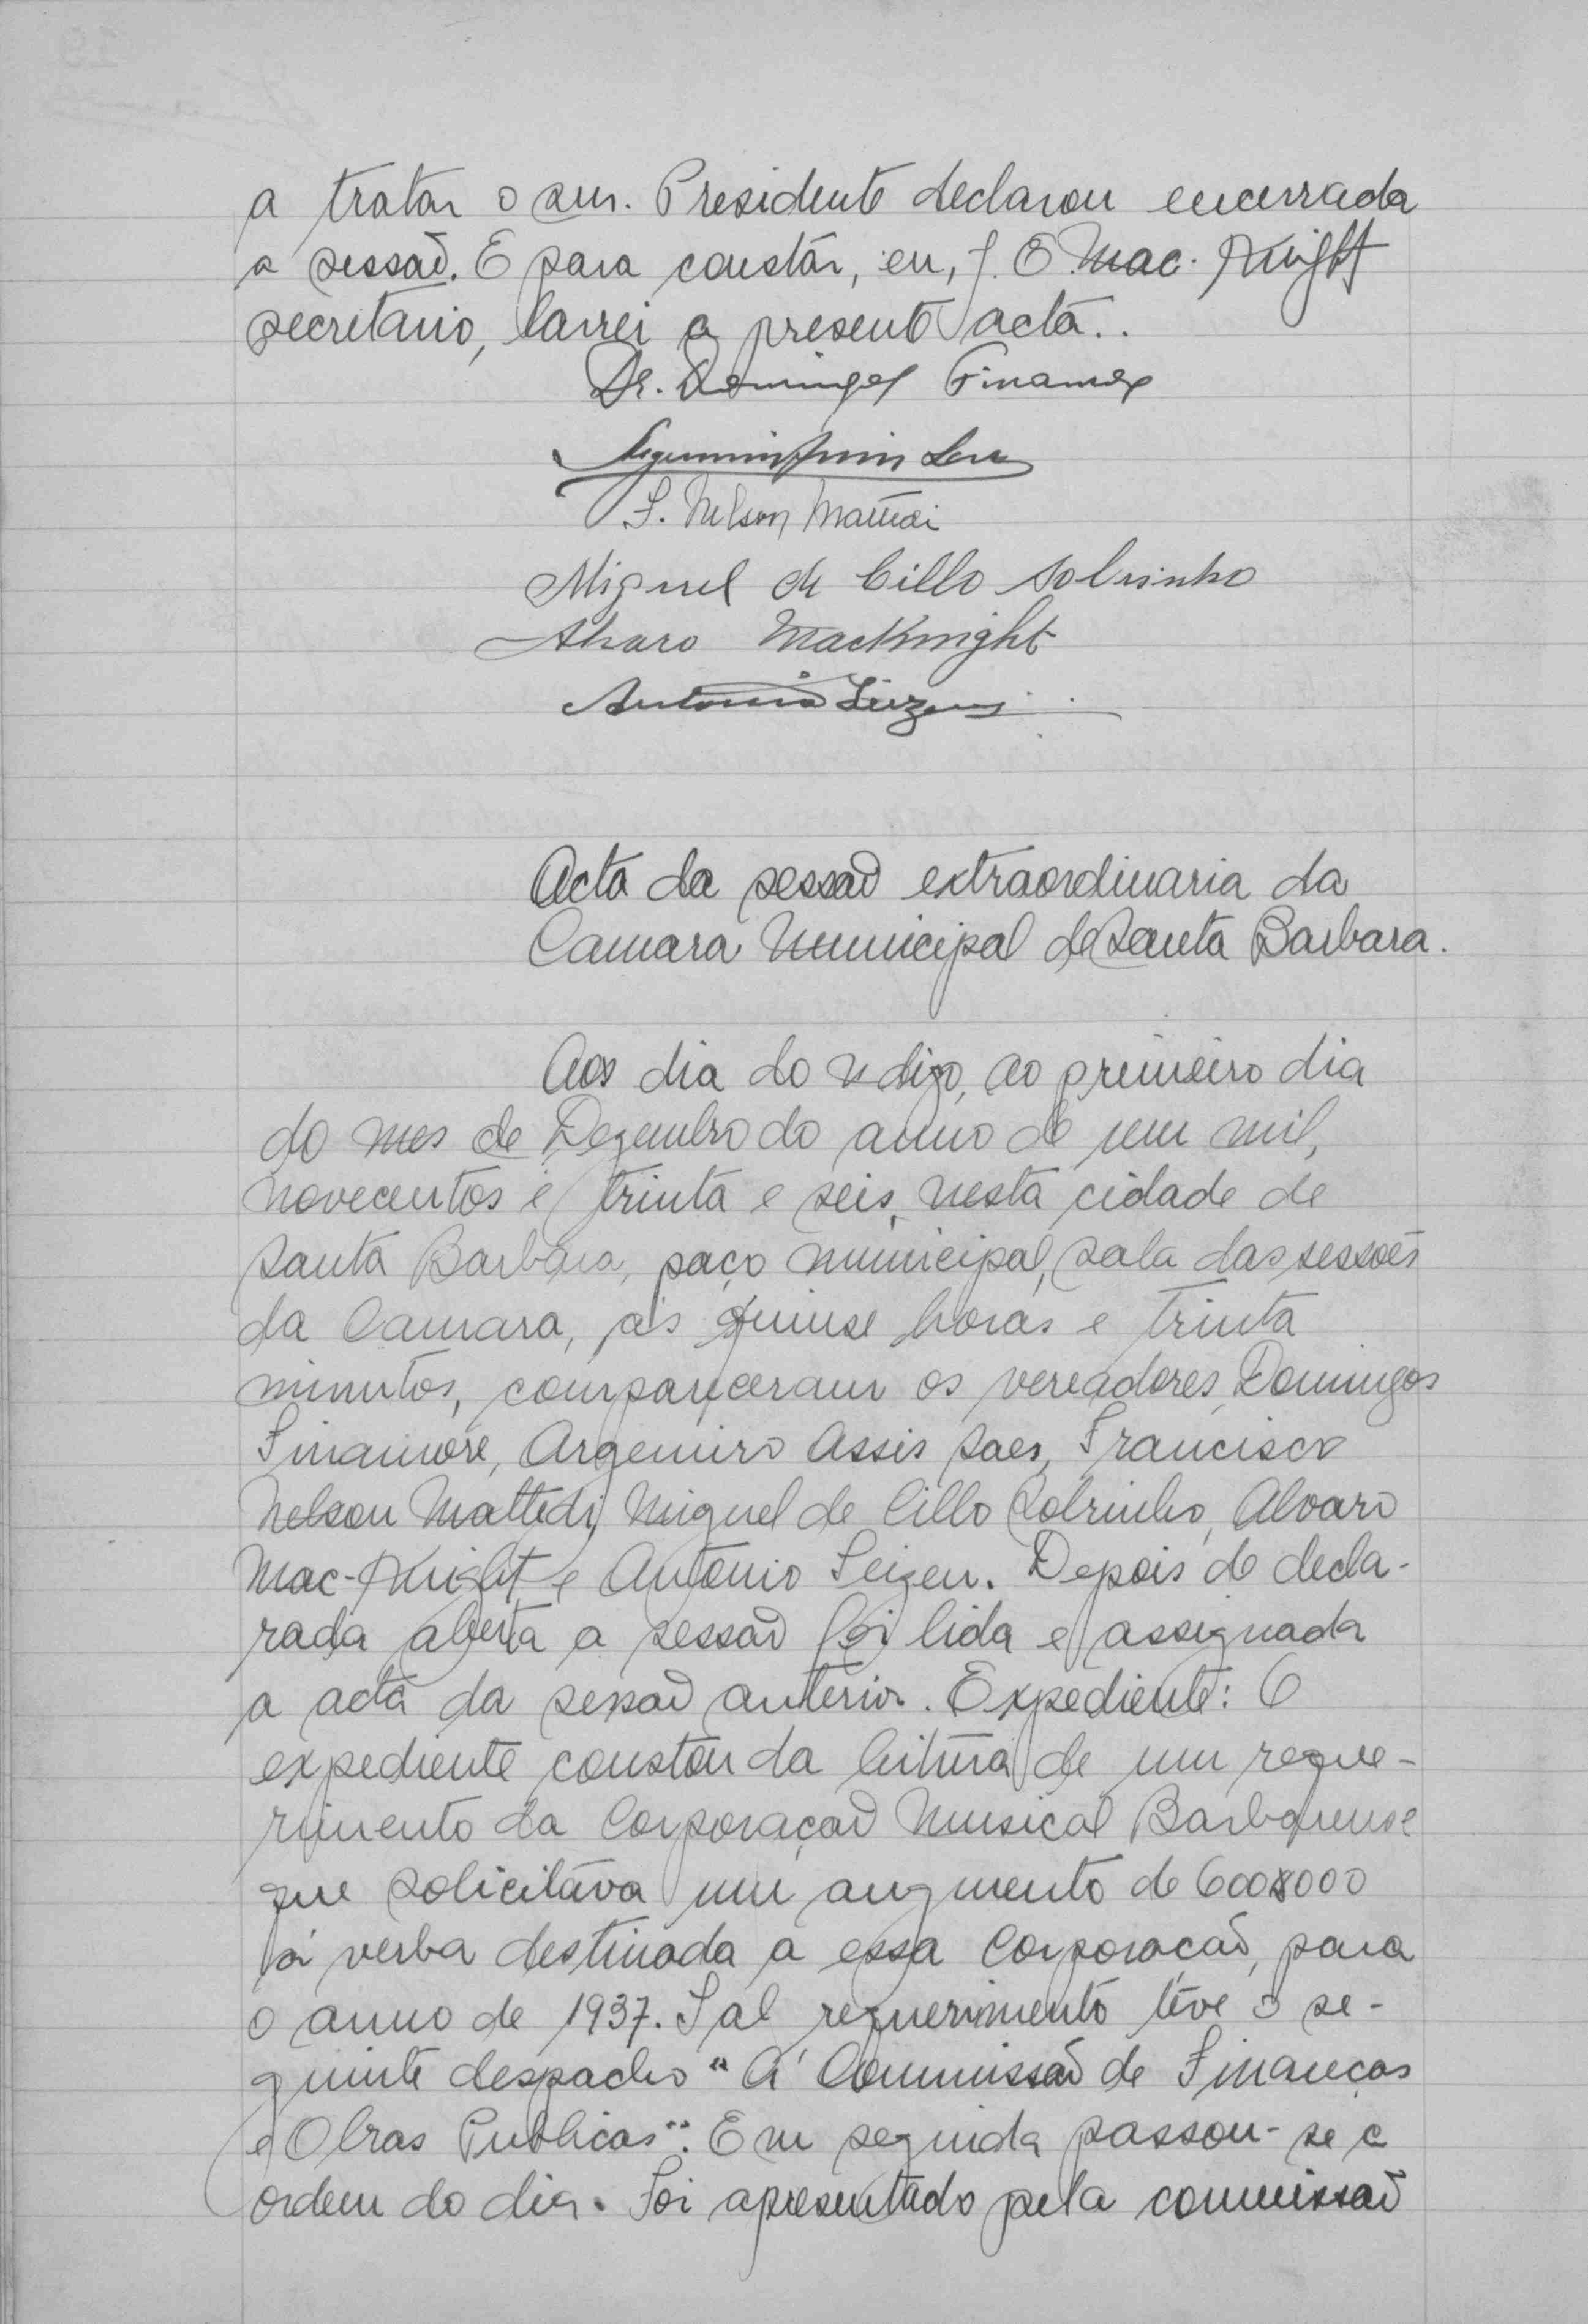 a tratar o snr. Presidente declarou encerrada
a sessão. E para constár, eu, J. E. Mac-Knight
secretario, lavrei a presente acta..
Dr. Domingos Finamore
F. Nelson Mattedi
Miguel de Cillo Sobrinho
Alvaro MacKnight
Antonio
Acta da sessão extraordinaria da
Camara Municipal de Santa Barbara.
Aos dia do n digo, ao primeiro dia
do mes de Dezembro do anno de um mil,
novecentos e trinta e seis, nesta cidade de
Santa Barbara, paço municipal, sala das sessoēs
da Camara, as quinse horas e trinta
minutos, compareceram os vereadores, Domingos
Finamore, Argemiro Assis Saes, Francisco
Nelson Mattedi, Miguel de Cillo Sobrinho, Alvaro
Mac-Knight e Antonio Leizen. Depois de decla-
rada aberta a sessão foi lida e assignada
a acta da sessão anterior. Expediente: O
expediente constou da leitura de um reque-
rimento da Corporação Musical Barbarense
que solicitava um augmento de 600$000
á verba destinada a essa Corporacão, para
o anno de 1937. Tal requerimento teve o se-
guinte despacho "A' Commissão de Financas
e Obras Publicas". Em seguida passou-se a
ordem do dia. Foi apresentado pela commissão